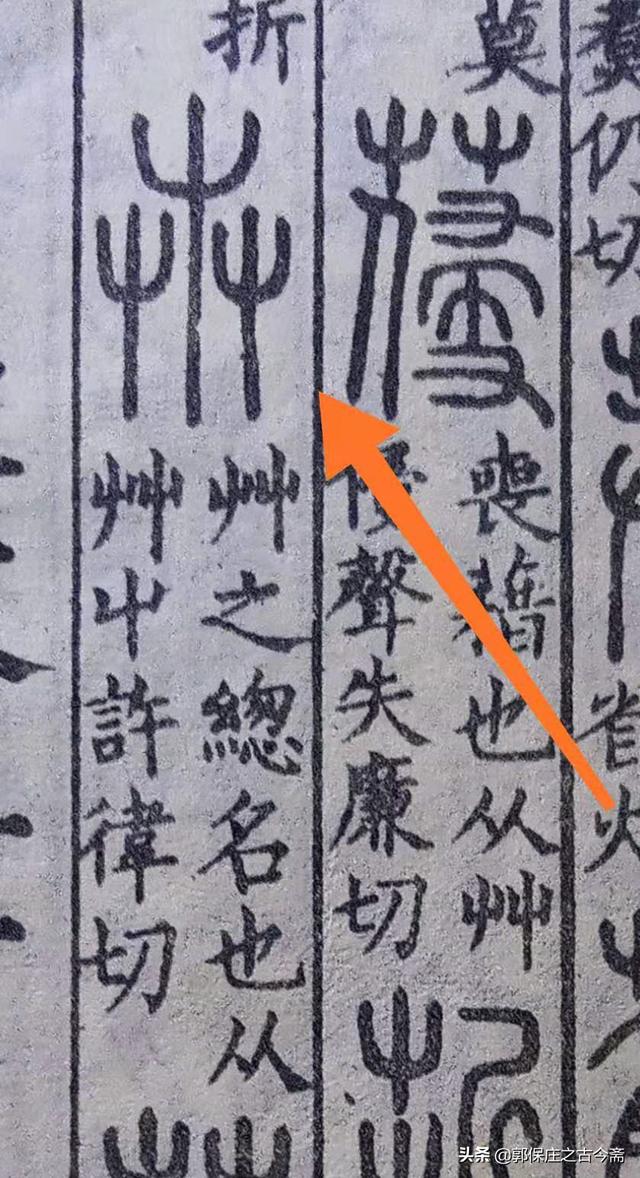 仍切
省
火
莫
喪藉也从艸
侵聲失廉切
折
卉
艸之總名也从
艸屮許偉切
头条 @郭保庄之古今斋